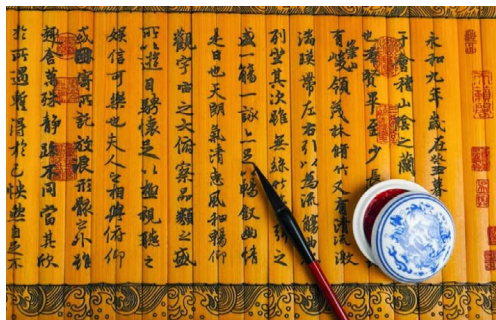 永和九年歲在癸丑暮
于會稽山陰之蘭
也羣賢畢至少長
崇山
有峻領茂林脩竹又有清流激
湍暎帶左右引以為流觴曲
列坐其次雖無絲弦之
盛一觴一詠亦足以暢敘幽情
是日也天朗氣清惠風和暢仰
觀宇宙之大俯察品類之盛
所以遊目騁懷足以極視聽之
娛信可樂也夫人之相與俯仰
或因寄所託放浪形骸之外雖
趣舍萬殊靜躁不同當其欣
於所遇蹔得於己快然自足不